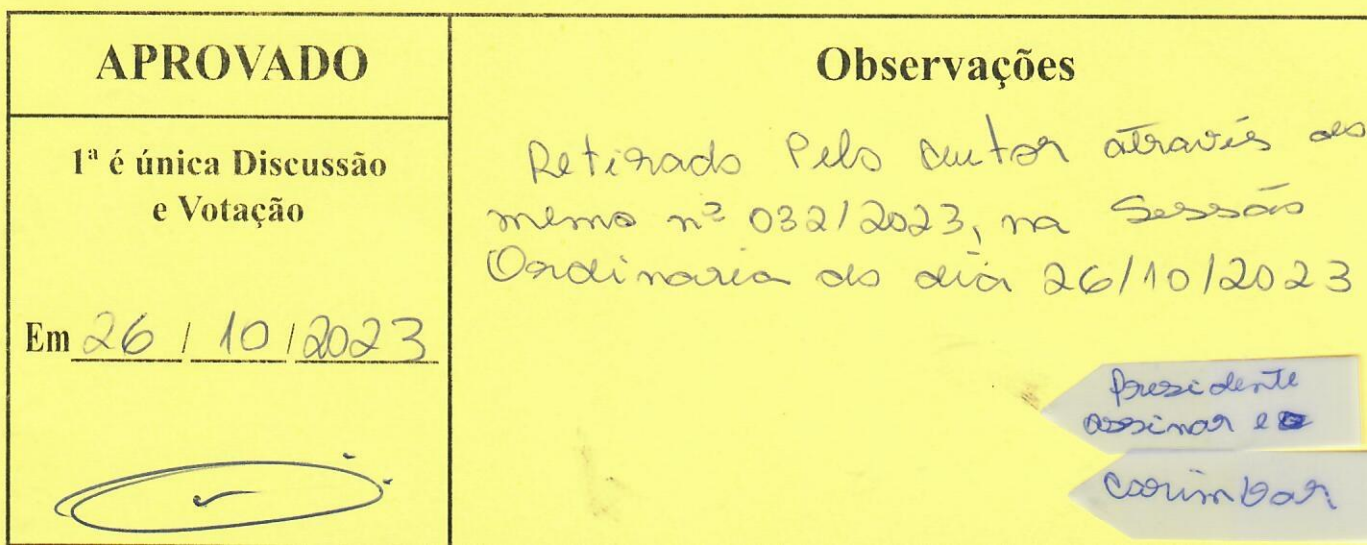 APROVADO
1ª é única Discussão
e Votação
Em 26 / 10 / 2023
Observações
Retirado Pelo Autor através do
memo nº 032/2023, na Sessão
Ordinaria do dia 26/10/2023
Presidente
assinar e
carimbar